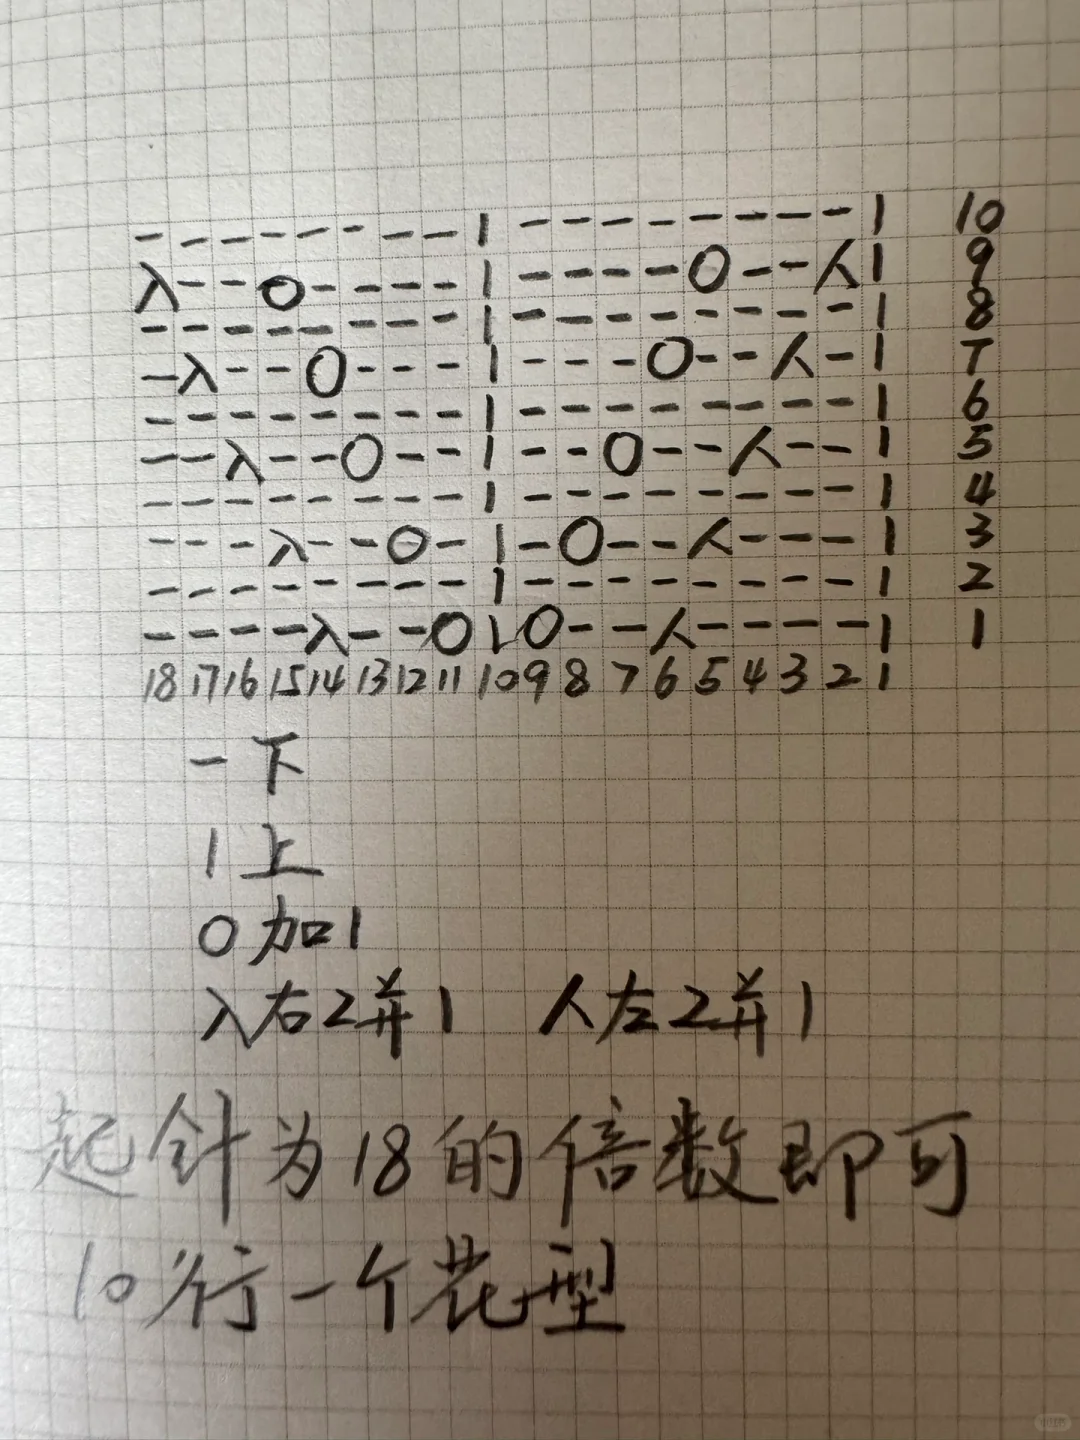 - - - - - - - - | - - - - - - - - | 10
入 - - O - - - - | - - - - O - - 人 | 9
- - - - - - - - | - - - - - - - - | 8
- 入 - - O - - - | - - - O - - 人 - | 7
- - - - - - - - | - - - - - - - - | 6
- - 入 - - O - - | - - O - - 人 - - | 5
- - - - - - - - | - - - - - - - - | 4
- - - 入 - - O - | - O - - 人 - - - | 3
- - - - - - - - | - - - - - - - - | 2
- - - - 入 - - O | O - - 人 - - - - | 1
18 17 16 15 14 13 12 11 10 9 8 7 6 5 4 3 2 1
- 下
| 上
O 加1
入右2并1 人左2并1
起针为18的倍数即可
10行一个花型